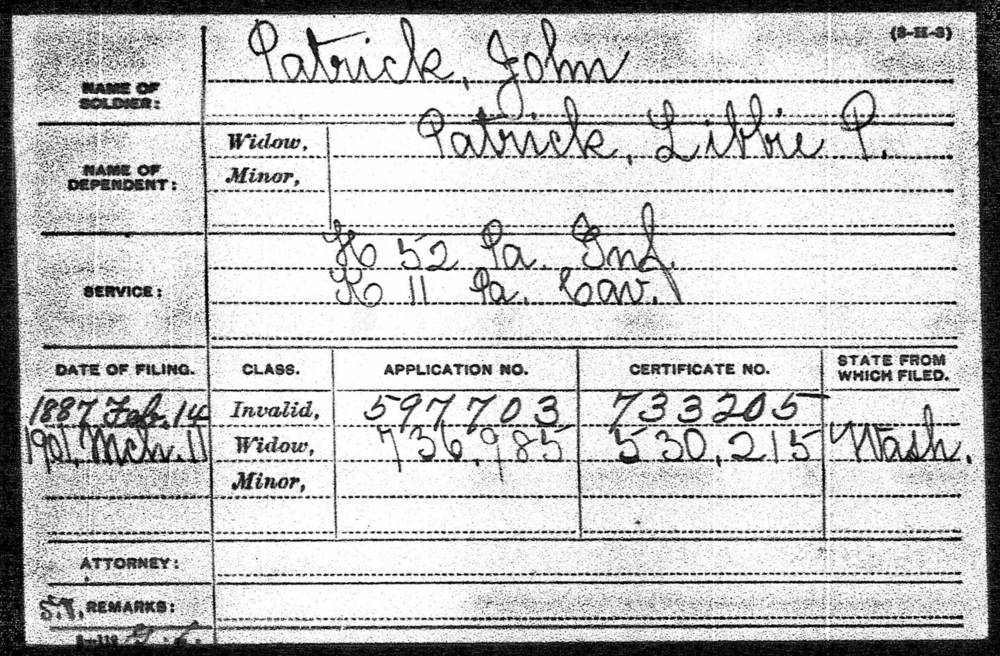 (3-H-3)
NAME OF SOLDIER: Patrick, John
NAME OF DEPENDENT: Widow, Patrick, Libbie P.
Minor,
SERVICE: H 52 Pa. Inf.
K 11 Pa. Cav.
DATE OF FILING. CLASS. APPLICATION NO. CERTIFICATE NO. STATE FROM WHICH FILED.
1887 Feb. 14 Invalid, 597703 733205
1901, Mch. 11 Widow, 736,985 530,215 Wash.
Minor,
ATTORNEY:
REMARKS: